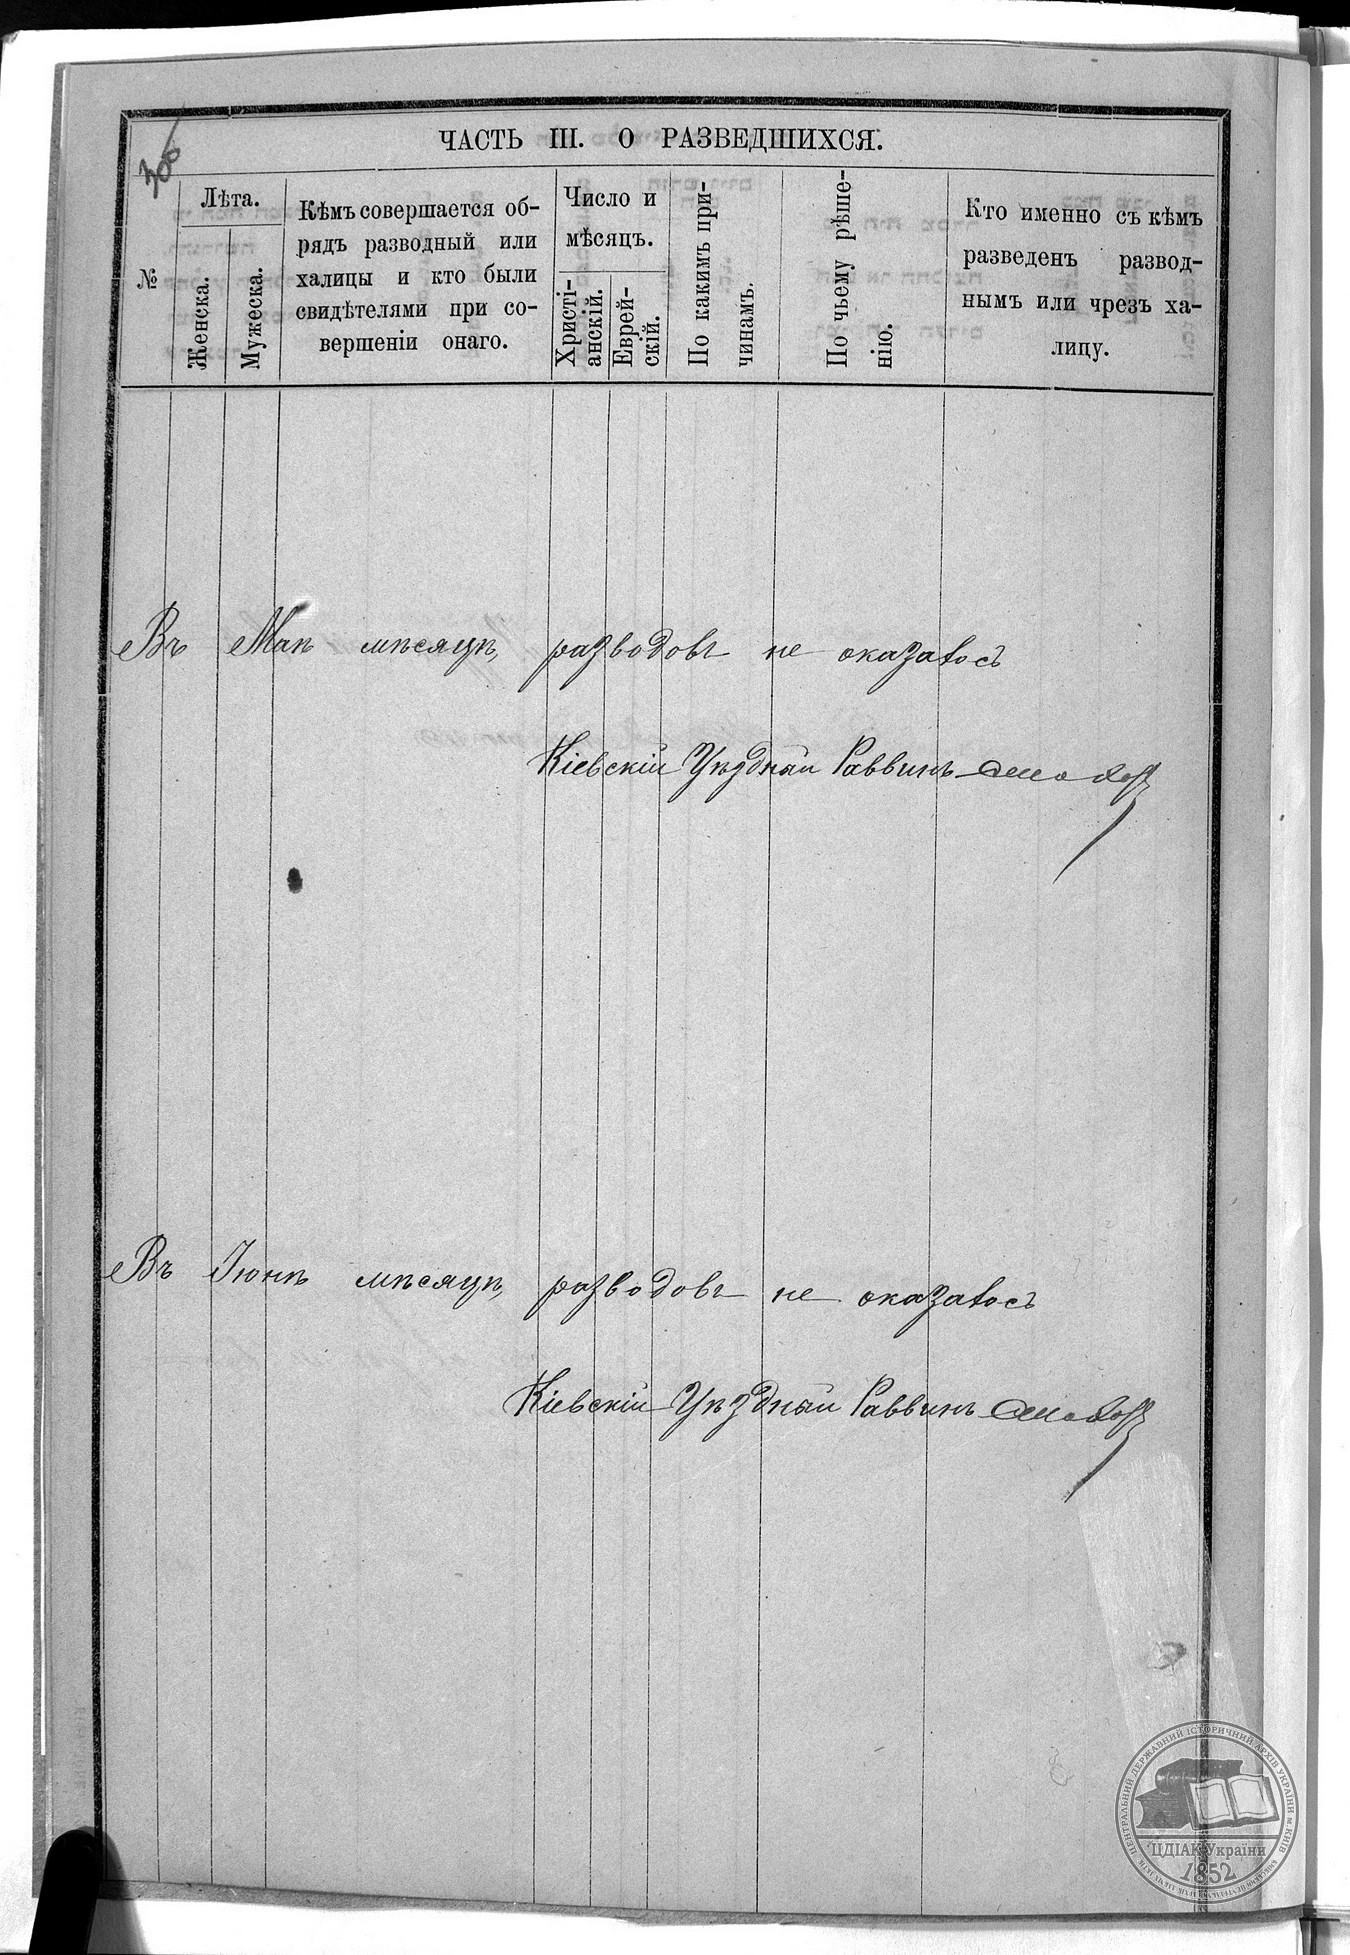 306
ЧАСТЬ III. О РАЗВЕДШИХСЯ.
№
Лѣта.
Женска.
Мужеска.
Кѣмъ совершается об-
рядъ разводный или
халицы и кто были
свидѣтелями при со-
вершеніи онаго.
Число и
мѣсяцъ.
Христі-
анскій.
Еврей-
скій.
По какимъ при-
чинамъ.
По чьему рѣше-
нію.
Кто именно съ кѣмъ
разведенъ развод-
нымъ или чрезъ ха-
лицу.
Въ Маѣ мѣсяцѣ, разводовъ не оказалось
Кіевскій Уѣздный Раввинъ
Въ Іюнѣ мѣсяцѣ, разводовъ не оказалось
Кіевскій Уѣздный Раввинъ
ЦЕНТРАЛЬНИЙ ДЕРЖАВНИЙ ІСТОРИЧНИЙ АРХІВ УКРАЇНИ м.КИЇВ
ЦДІАК України
1852